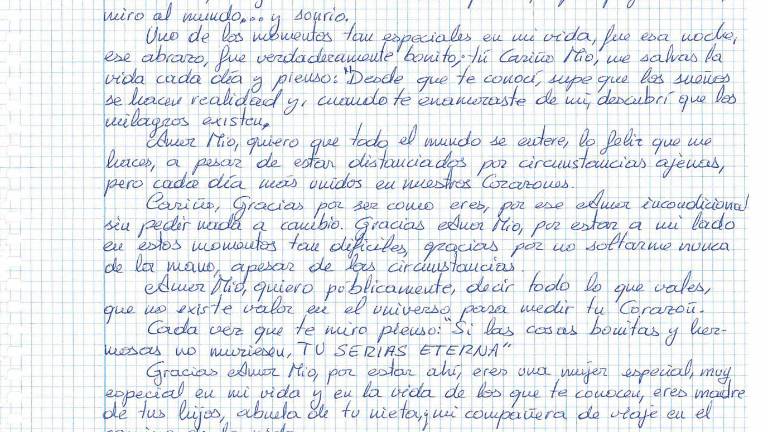 miro al mundo... y sonrio.
Uno de los momentos tan especiales en mi vida, fue esa noche,
ese abrazo, fue verdaderamente bonito, tú Cariño Mio, me salvas la
vida cada día y pienso: "Desde que te conocí, supe que los sueños
se hacen realidad y, cuando te enamoraste de mi, descubrí que los
milagros existen,
Amor Mio, quiero que todo el mundo se entere, lo feliz que me
haces, a pesar de estar distanciados por circunstancias ajenas,
pero cada día más unidos en nuestros Corazones.
Cariño, Gracias por ser como eres, por ese Amor incondicional
sin pedir nada a cambio. Gracias Amor Mio, por estar a mi lado
en estos momentos tan difíciles, gracias por no soltarme nunca
de la mano, apesar de las circunstancias.
Amor Mio, quiero públicamente, decir todo lo que vales,
que no existe valor en el universo para medir tu Corazon.
Cada vez que te miro pienso: "Si las cosas bonitas y her-
mosas no muriesen, TU SERIAS ETERNA"
Gracias Amor Mio, por estar ahí, eres una mujer especial, muy
especial en mi vida y en la vida de los que te conocen, eres madre
de tus hijos, abuela de tu nieta, y mi compañera de viaje en el
camino de la vida